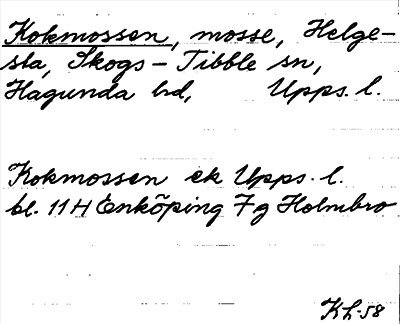 Kokmossen, mosse, Helge-
sta, Skogs-Tibble sn,
Hagunda hd, Upps. l.
Kokmossen ek Upps. l.
bl. 11 H Enköping 7g Holmbro
Kh-58